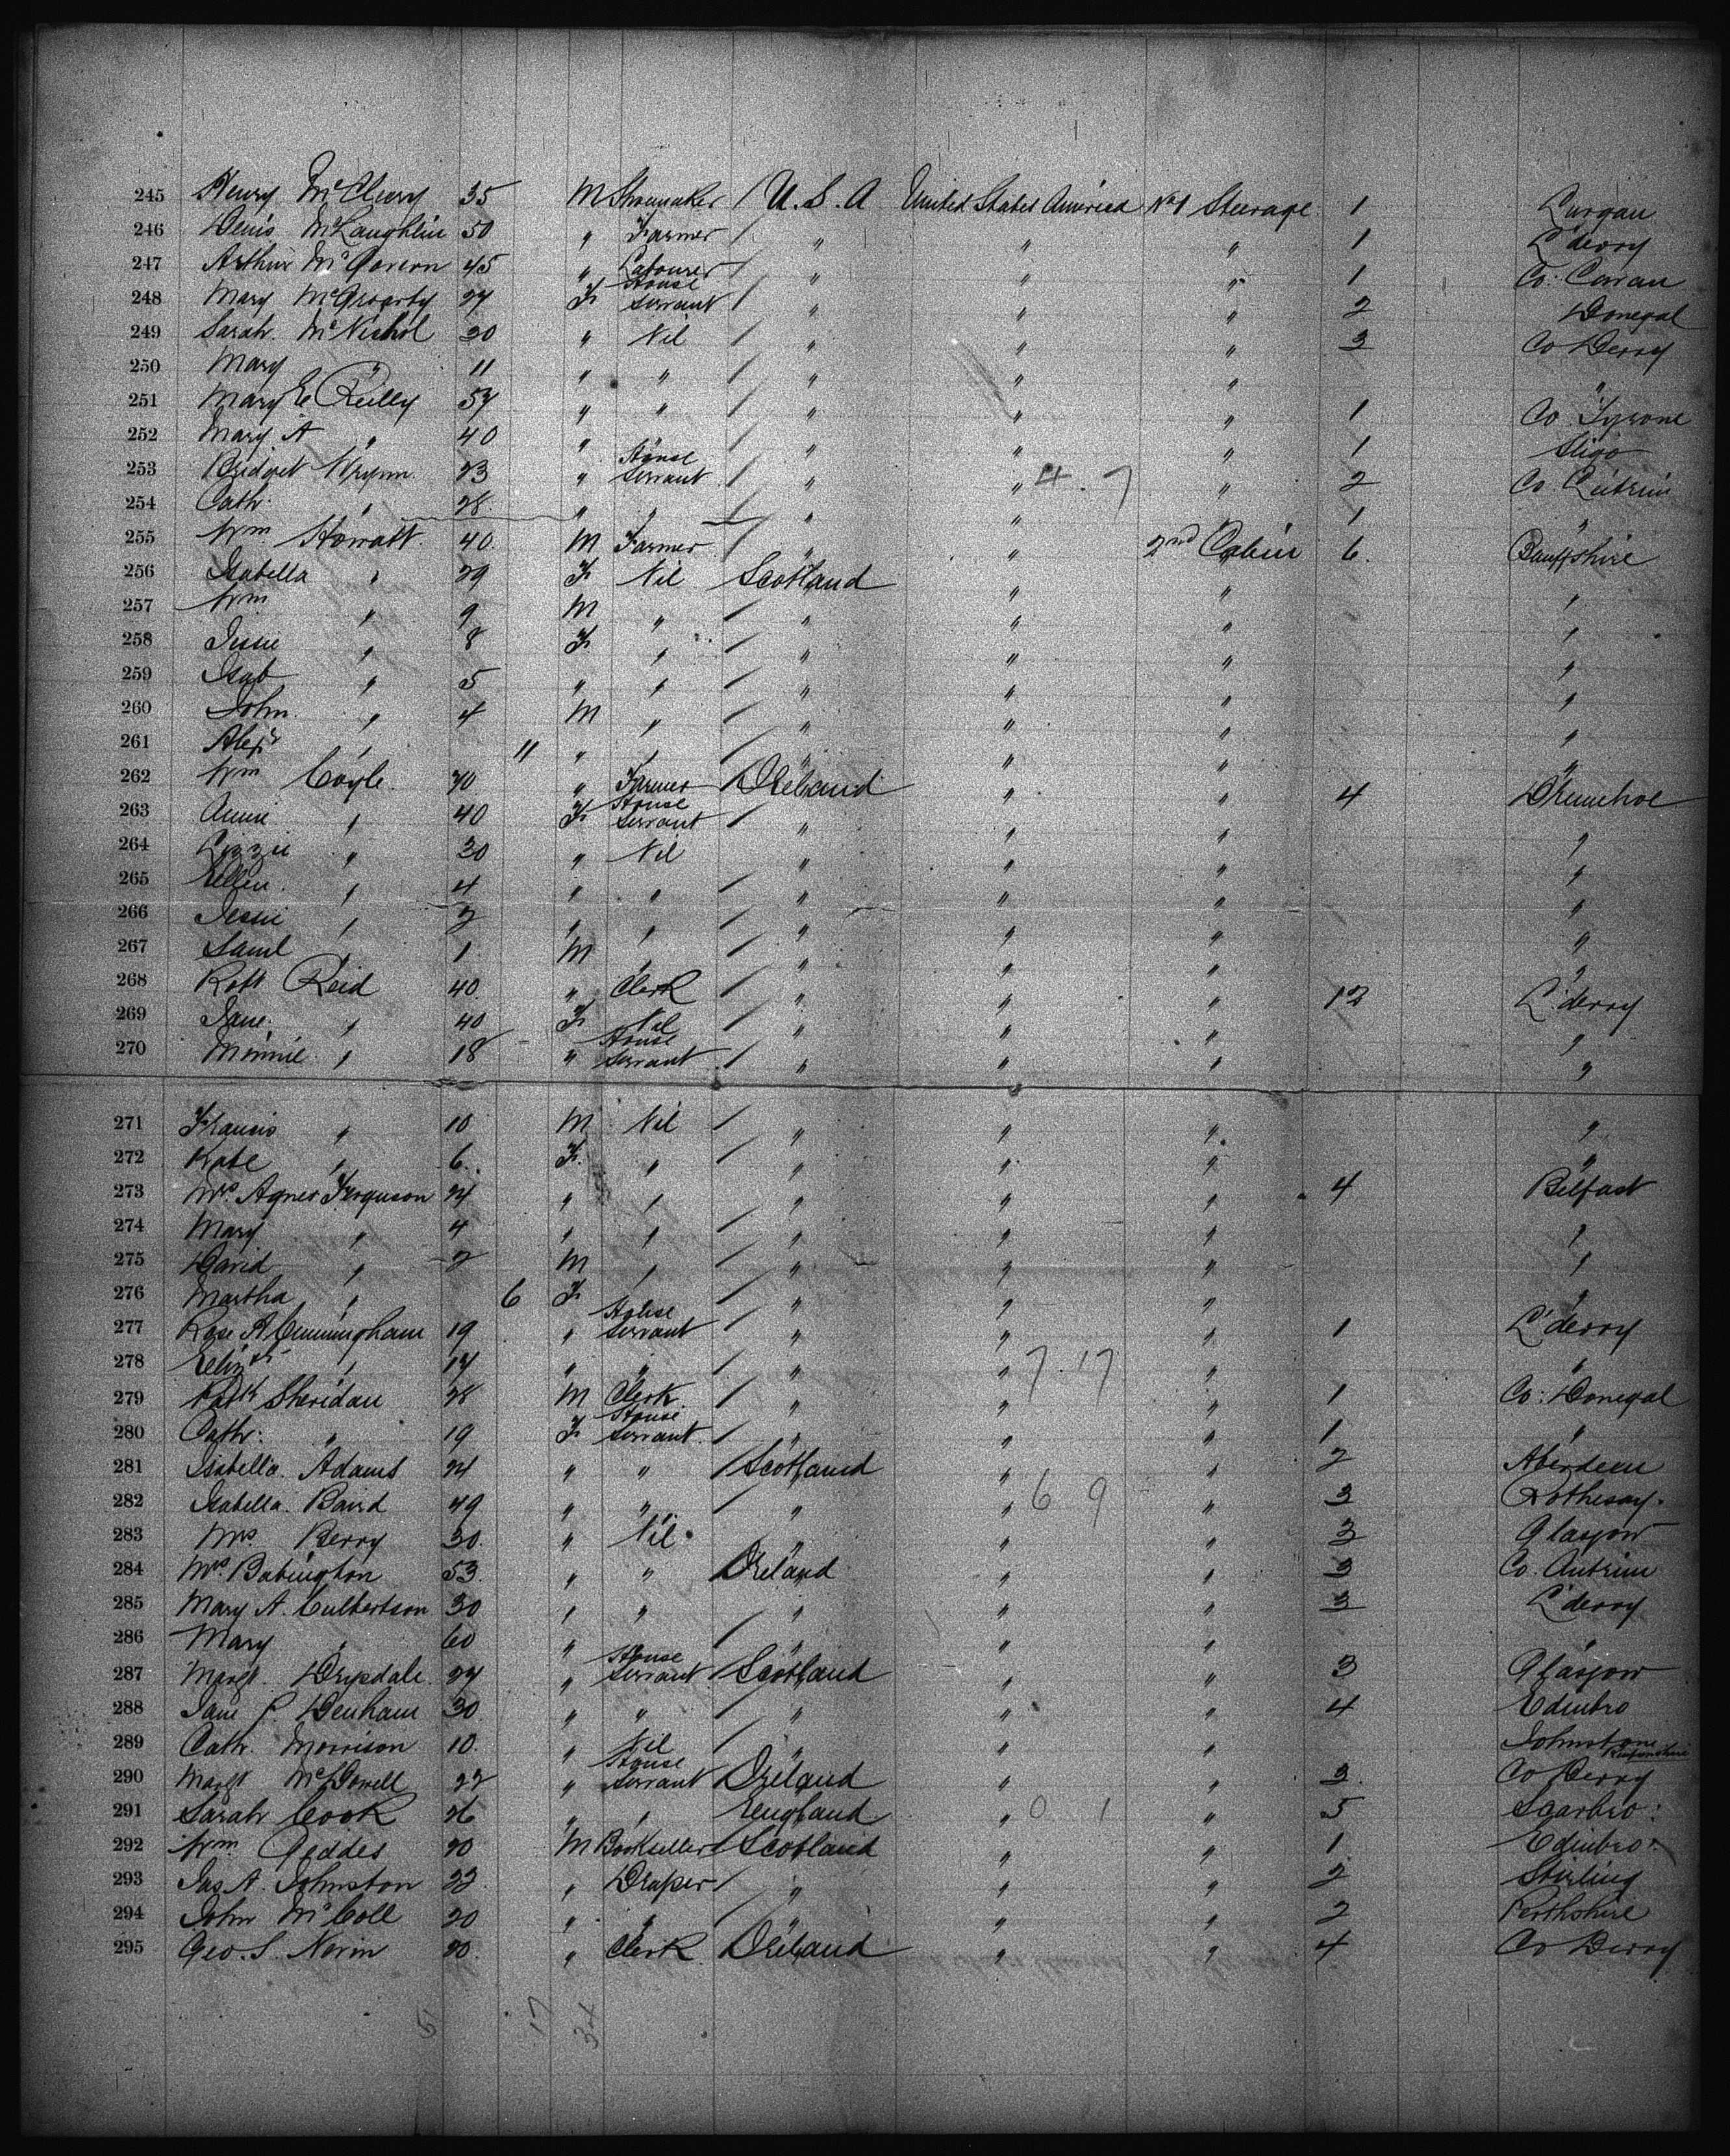 245 Henry McCleery 35 M Shoemaker / U.S.A United States America No 1 Steerage 1 Lurgan
246 Denis McLaughlin 50 " Farmer / " " " 1 L'derry
247 Arthur McGovern 45 " Labourer / " " " 1 Co: Cavan
248 Mary McGroarty 27 F House Servant / " " " 2 Donegal
249 Sarah McNichol 30 " Nil / " " " 3 Co Derry
250 Mary " 11 " " / " " " "
251 Mary E Reilly 57 " " / " " " 1 Co Tyrone
252 Mary A " 40 " / " " " 1 Sligo
253 Bridget Wrynn 23 " House Servant " " 4.7 " 2 Co. Leitrim
254 Cath: " 28 " " / " " 1 "
255 Wm Howatt 40 M Farmer / " " 2nd Cabin 6 Banffshire
256 Isabella " 29 F Nil Scotland " " "
257 Wm " 9 M " / " " " "
258 Jessie " 8 F " / " " " "
259 Isab " 5 " " / " " " "
260 John " 4 M " / " " " "
261 Alexr " 11 " " / " " " "
262 Wm Coyle 70 " Farmer / Ireland " " 4
263 Annie " 40 F House Servant / " " " "
264 Lizzie " 30 " Nil " " " "
265 Ellen " 4 " " / " " " "
266 Jessie " 2 " " / " " " "
267 Saml " 1 M " / " " " "
268 Robt Reid 40 " Clerk / " " " 12 L'derry
269 Jane " 40 F Nil / " " " "
270 Minnie " 18 " House Servant / " " " "
271 Francis " 10 M Nil / " " " "
272 Kate " 6 F " / " " " "
273 Mrs Agnes Ferguson 24 " " / " " " 4 Belfast
274 Mary " 4 " " / " " " "
275 David " 2 M " / " " " "
276 Martha " 6 F / " " " "
277 Rose A Cunningham 19 " House Servant " " " 1 L'derry
278 Elizth " 17 " " / " " 7.17 " "
279 Patk Sheridan 28 M Clerk / " " " 1 Co: Donegal
280 Cath: " 19 F House Servant / " " " 1 "
281 Isabella Adams 24 " " / Scotland " " 2 Aberdeen
282 Isabella Baird 49 " " / " " 6 9 " 3 Rothesay
283 Mrs Berry 30 " Nil " " " 3 Glasgow
284 Mrs Babington 53 " " Ireland " " 3 Co. Antrim
285 Mary A. Culbertson 30 " " / " " " 3 L'derry
286 Mary " 60 " / " " " "
287 Margt Drysdale 27 " House Servant / Scotland " " 3 Glasgow
288 Jane P. Denham 30 " " / " " " 4 Edinbro
289 Cath. Morrison 10 " Nil / " " " Johnstone Renfrewshire
290 Margt McDowell 22 " House Servant Ireland " " 3 Co Derry
291 Sarah Cook 26 " " England " 0 1 " 5 Scarbro:
292 Wm Geddes 20 M Bookseller / Scotland " " 1 Edinbro:
293 Jas A. Johnston 22 " Draper / " " " 2 Stirling
294 John McColl 20 " " " " " 2 Perthshire
295 Geo. S. Nevin 20 " Clerk / Ireland " " 4 Co Derry
17 34